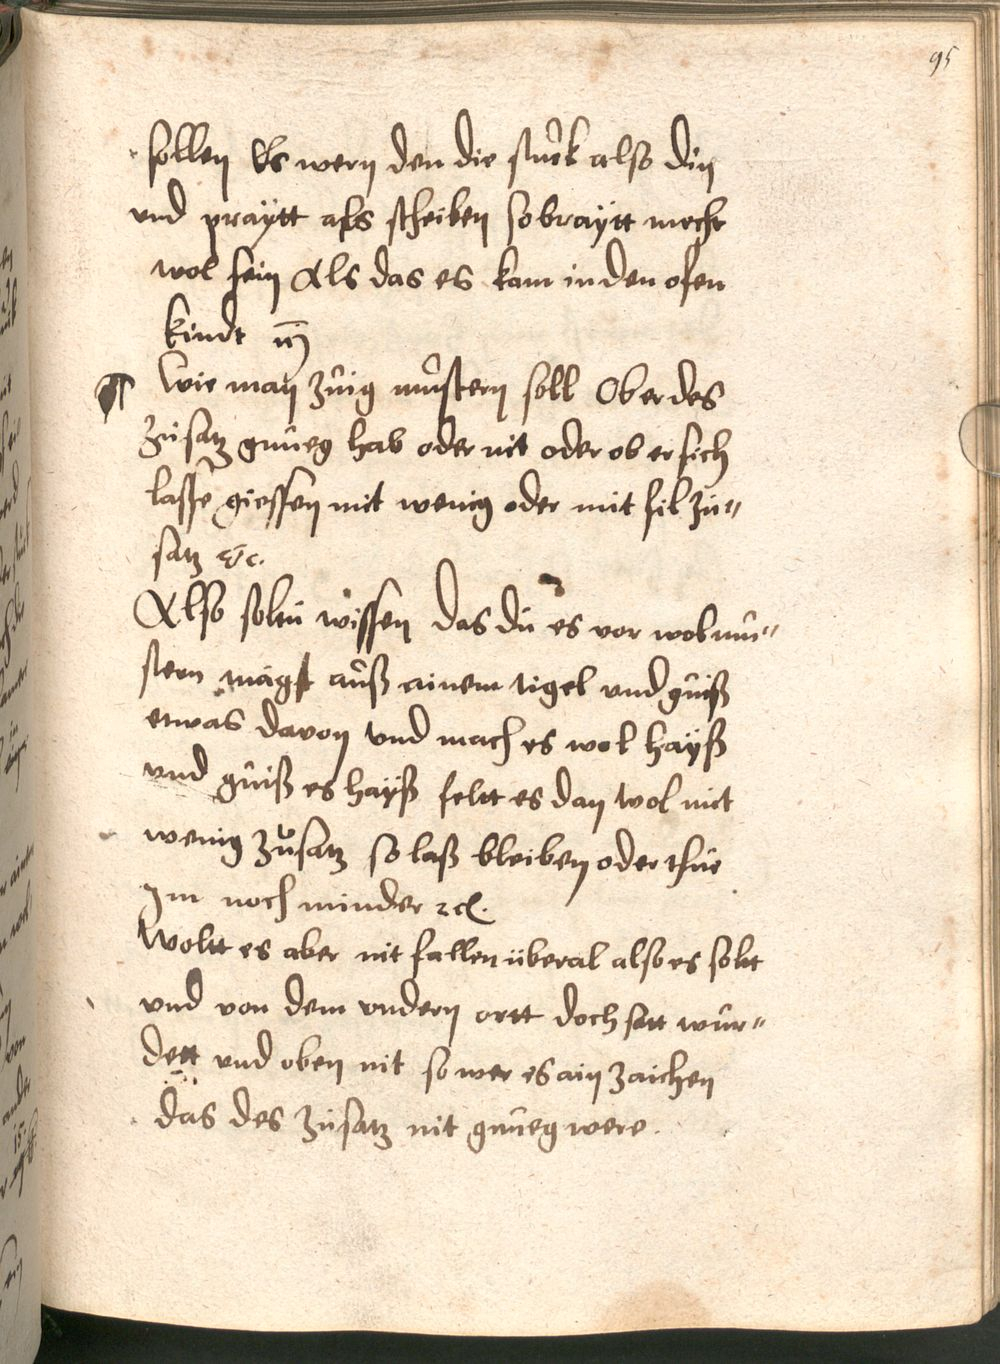 95
sollen Es wern den die stuck also din
und praÿtt als scheiben so braÿtt mecht
wol sein Als das es kam in den ofen
kindt
¶ Wie man zuig mustern soll Ob er des
zusatz gnueg hab oder nit oder ob er sich
lasse giessen mit wenig oder mit fil zu"
satz &c.
Also soltu wissen das du es vor wol mu"
stern magst auß ainem tigel und guiß
etwas davon und mach es wol haÿß
und guiß es haÿß felt es dan wol mit
wenig zusatz so laß bleiben oder thue
Im noch minder &c.
Woltt es aber nit fallen überal also es solt
und von dem undern ortt doch satt wur"
dett und oben nit so wer es ain zaichen
das des zusatz nit gnueg were.